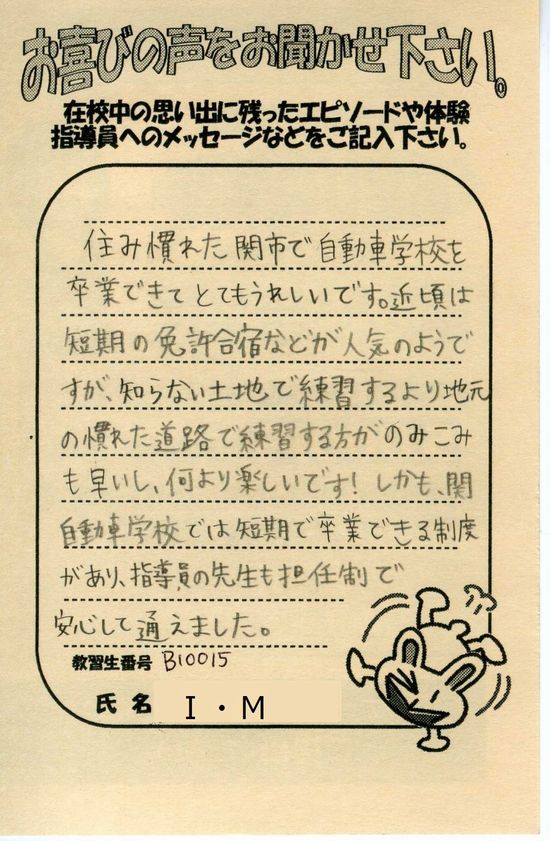 お喜びの声をお聞かせ下さい。
在校中の思い出に残ったエピソードや体験
指導員へのメッセージなどをご記入下さい。
住み慣れた関市で自動車学校を
卒業できてとてもうれしいです。近頃は
短期の免許合宿などが人気のようで
すが、知らない土地で練習するより地元
の慣れた道路で練習する方がのみこみ
も早いし、何より楽しいです!しかも、関
自動車学校では短期で卒業できる制度
があり、指導員の先生も担任制で
安心して通えました。
教習生番号 B10015
氏名 I・M